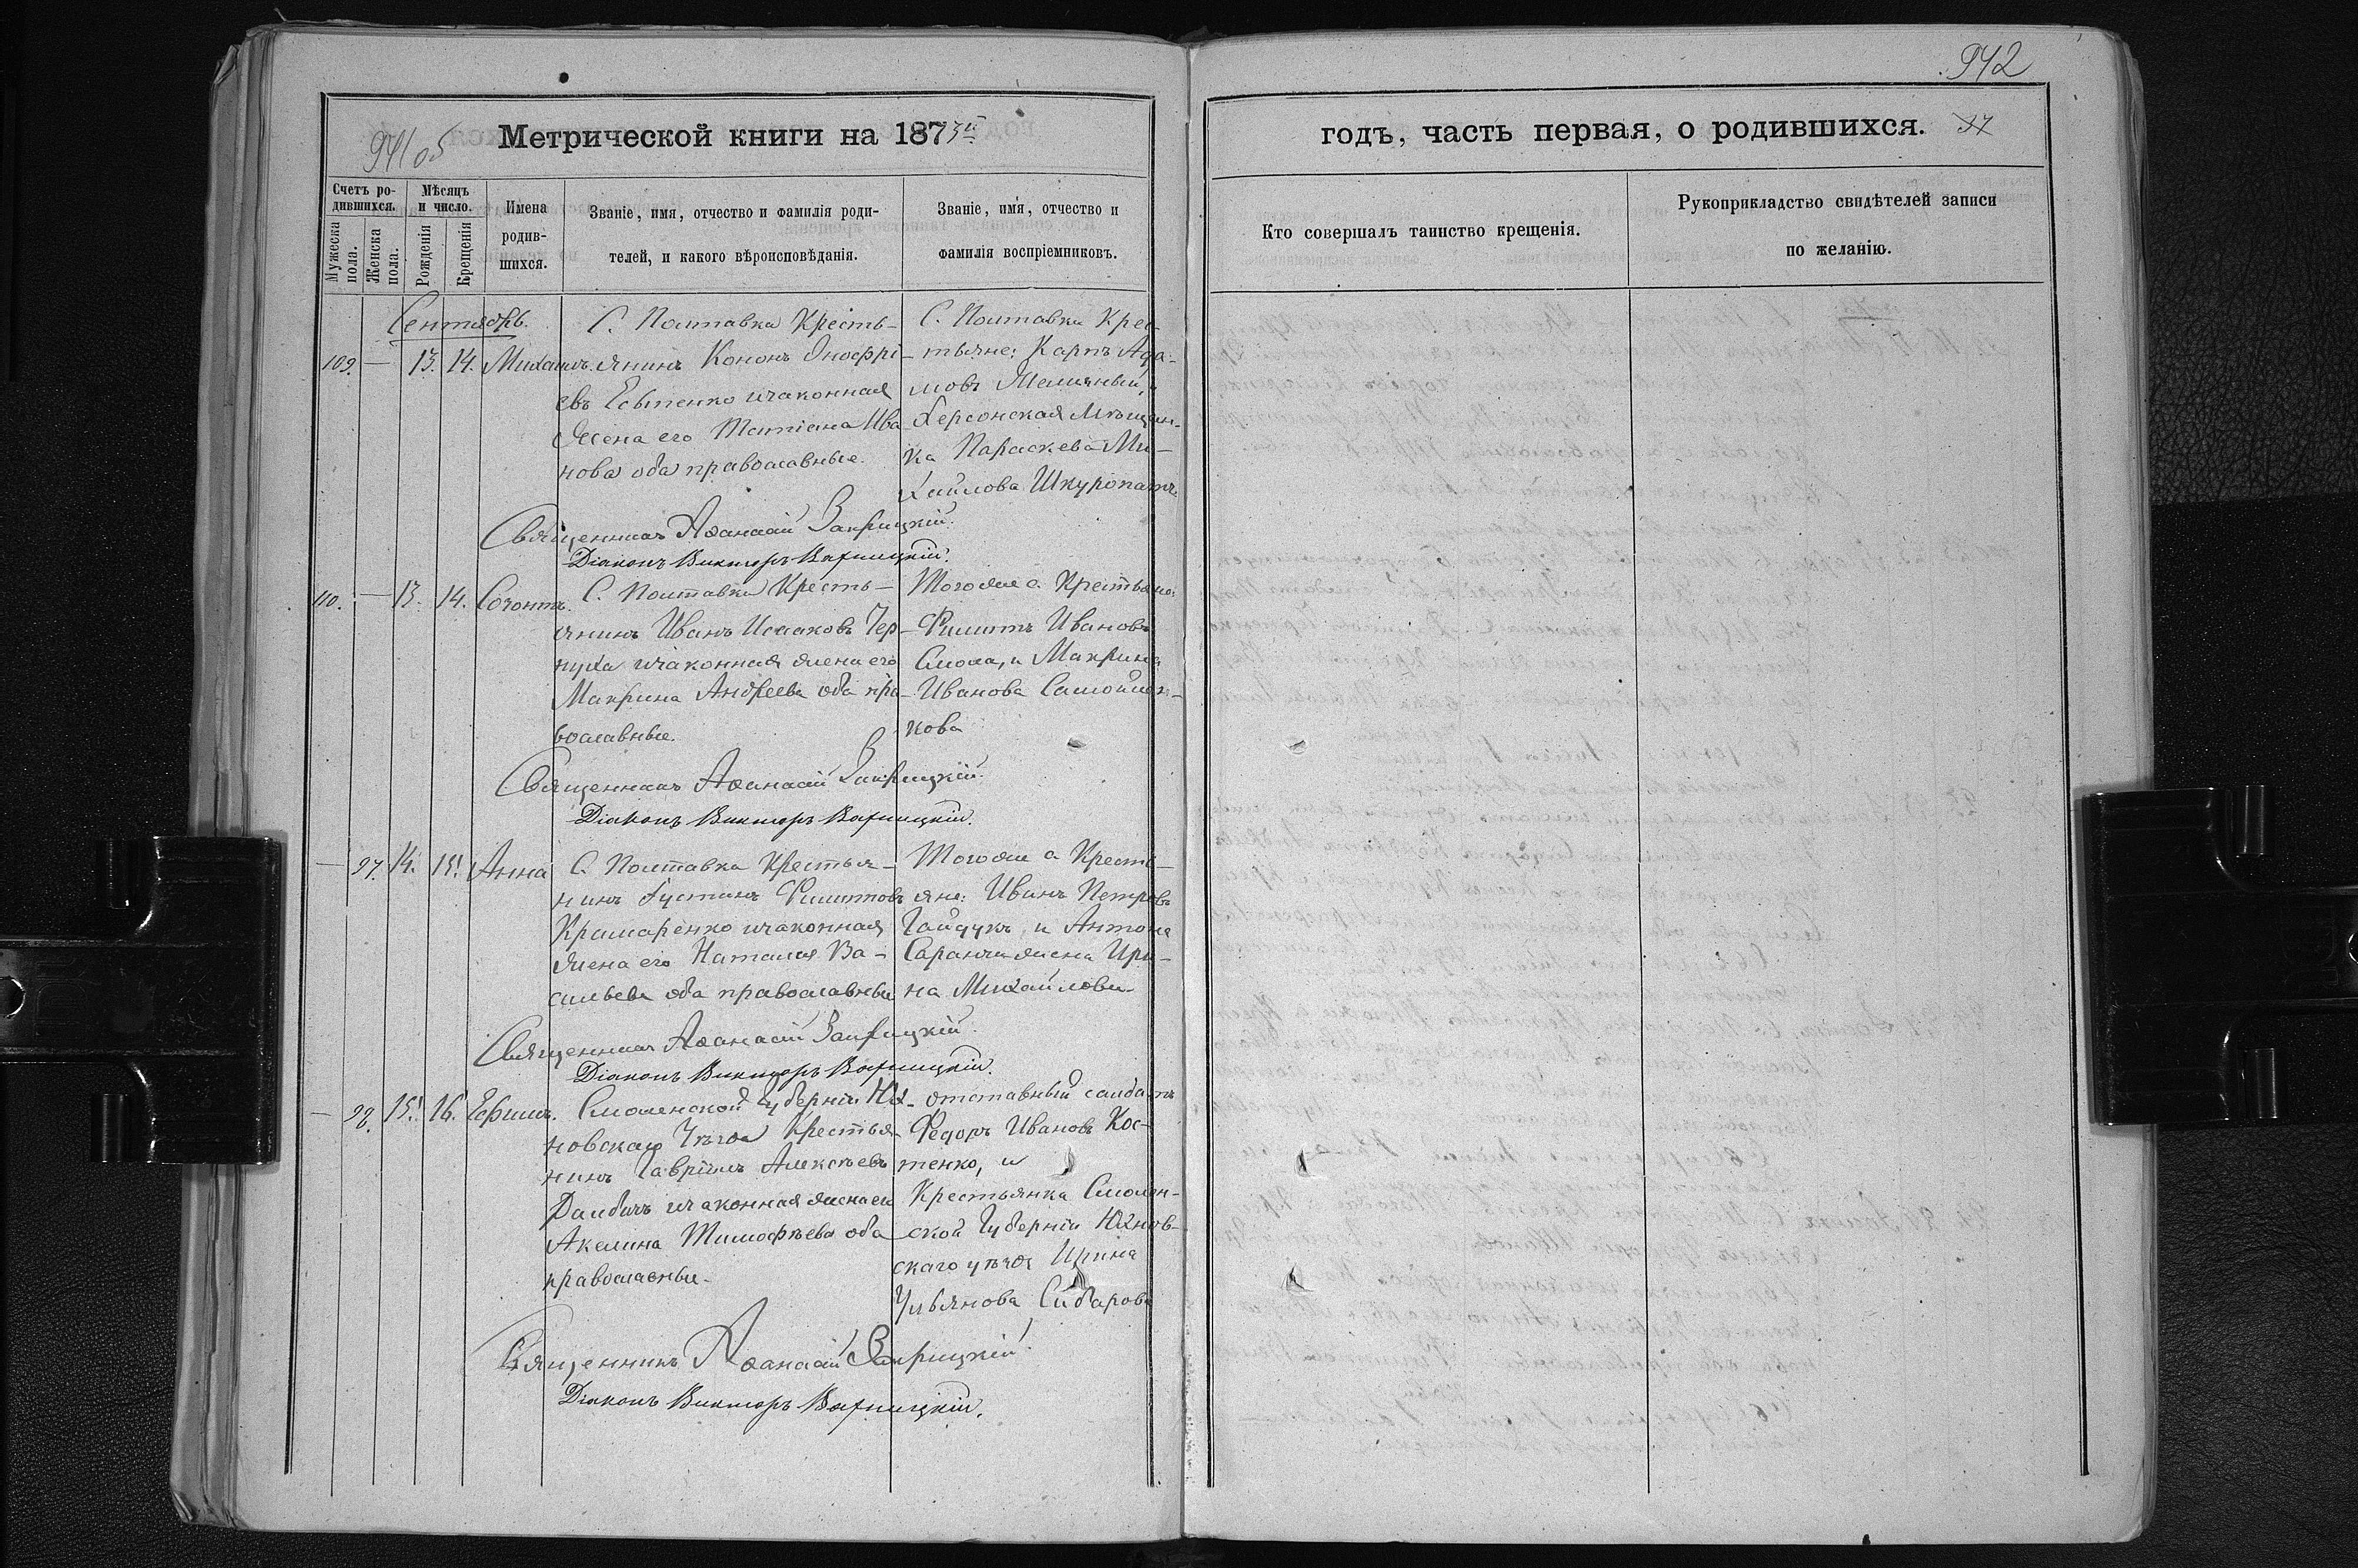 942
941 об
Метрической книги на 1873й
годъ, часть первая, о родившихся. 37
Счетъ родившихся.
Мужеска пола.
Женска пола.
Мѣсяцъ и число.
Рожденія
Крещенія
Имена родив-
шихся.
Званіе, имя, отчество и фамилія роди-
телей, и какого вѣроисповѣданія.
Званіе, имя, отчество и
фамилія воспріемниковъ.
Кто совершалъ таинство крещенія.
Рукоприкладство свидѣтелей записи
по желанію.
Сентябрь.
109. — 13. 14. Михаилъ.
С. Полтавка Кресть-
янинъ Кононъ Онофрі-
евъ Евтенко и законная
жена его Татіана Ива
нова оба православные.
С. Полтавки Крес-
тьяне: Карпъ Ада-
мовъ и
Херсонская Мѣщан-
ка Параскева Ми-
хайлова Шкуропатъ
Священникъ Аѳанасій Закрицкій.
Діаконъ Викторъ Варницкій.
110. — 13. 14. Созонтъ.
С. Полтавки Кресть-
янинъ Иванъ Исааковъ Чер-
нуха и законная жена его
Макрина Андреева оба пра-
вославные.
Того же с. Крестьяне:
Филиппъ Ивановъ
Смола, и Макрина
Иванова Самойлен-
кова
Священникъ Аѳанасій Закрицкій.
Діаконъ Викторъ Варницкій.
— 97. 14. 15. Анна
С. Полтавка Крестья-
нинъ Густинъ Филипповъ
Крамаренко и законная
жена его Наталія Ва-
сильева оба православные
Того же с. Кресть-
яне: Иванъ Петровъ
Гайдукъ, и Антона
Саранчи жена Ири-
на Михайлова
Священникъ Аѳанасій Закрицкій.
Діаконъ Викторъ Варницкій.
— 98. 15. 16. Ефимъ.
Смоленской Губерніи Юх-
новскаго Уѣзда Крестья-
нинъ Гавріилъ Алексѣевъ
и законная жена его
Акелина Тимофѣева оба
православные.
отставный солдатъ
Федоръ Ивановъ Кос-
тенко, и
Крестьянка Смолен-
ской Губерніи Юхнов-
скаго уѣзда Ирина
Ульянова Сидарова
Священникъ Аѳанасій Закрицкій.
Діаконъ Викторъ Варницкій.